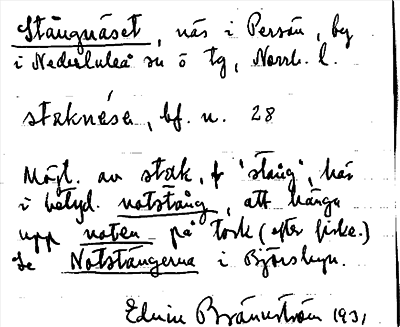 Stångnäset, näs i Persön, by
i Nederluleå sn ö tg, Norrb. l.
staknése, bf. n. 28
Möjl. av stak, f 'stång', här
i betyd. notstång, att hänga
upp noten på tork (efter fiske.)
Se Notstängerna i Björsbyn.
Edvin Brännström 1931